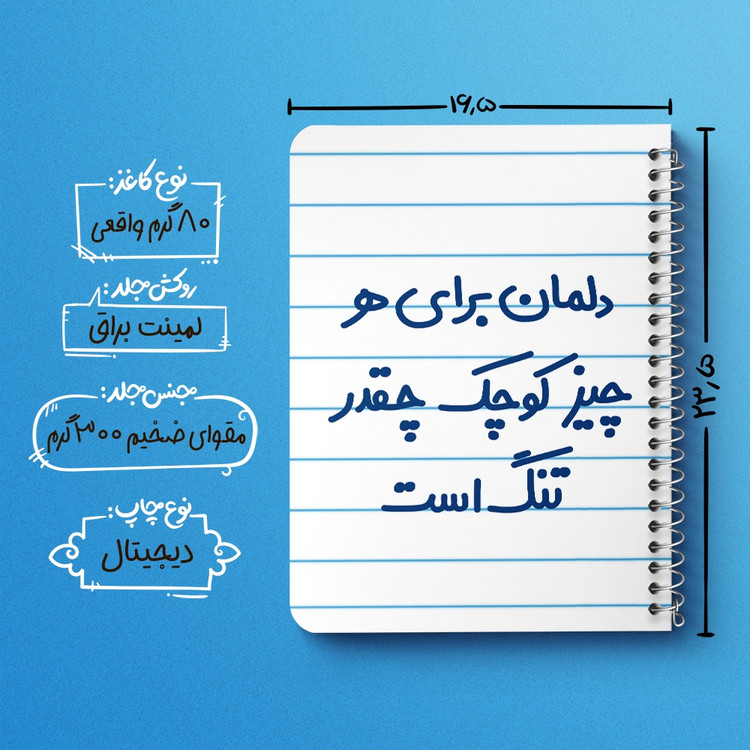 ۱۶٫۵
۲۳٫۵
دلمان برای هو
چیز کوچک چقدر
تنگ است
نوع کاغذ:
۸۰ گرم واقعی
روکش جلد:
لمینت براق
جنس جلد:
مقوای ضخیم ۳۰۰ گرم
نوع چاپ:
دیجیتال